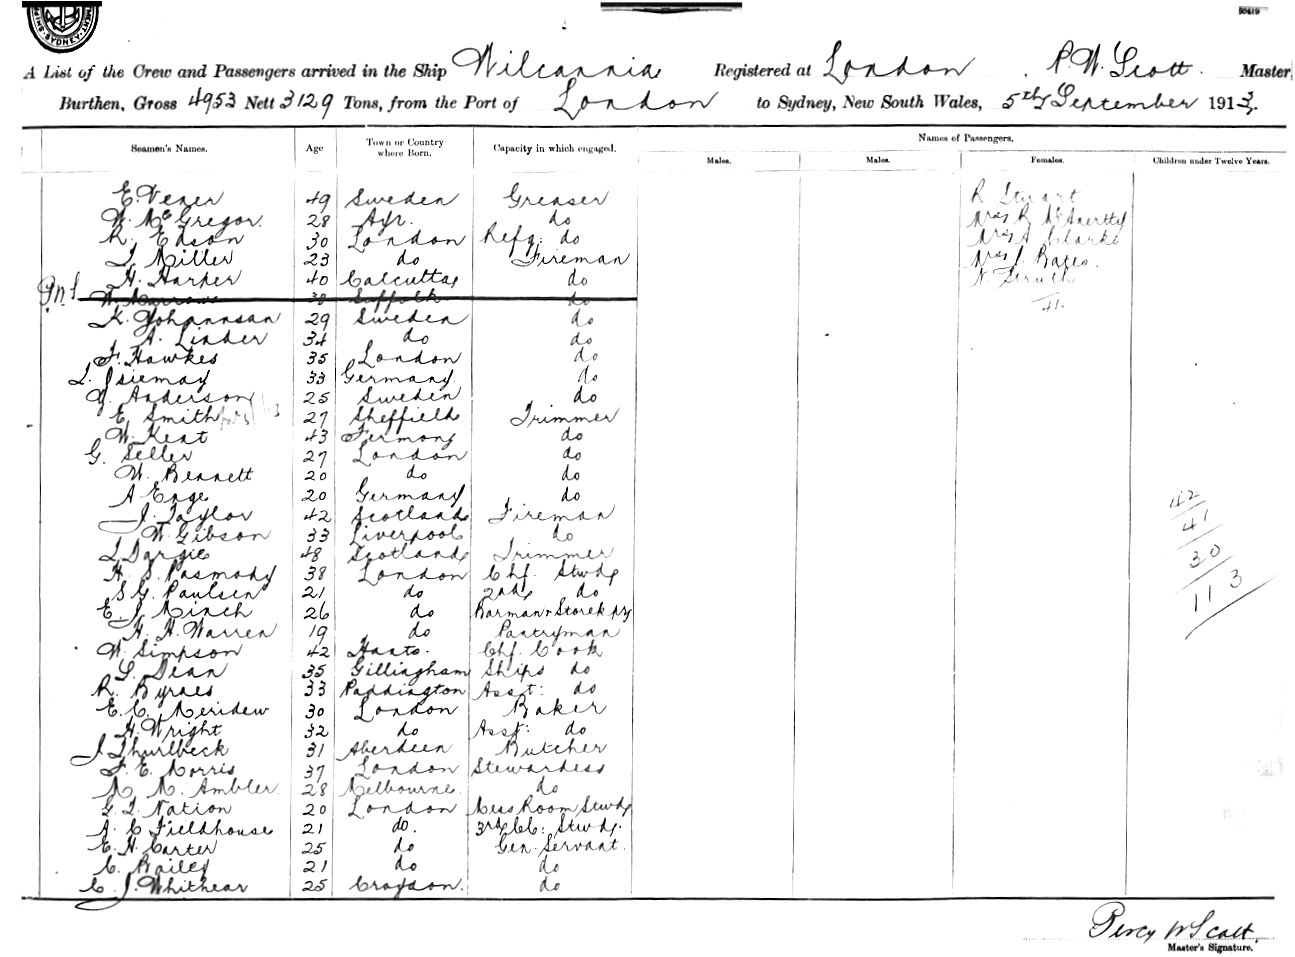 SYDNEY
50419
A List of the Crew and Passengers arrived in the Ship Wilcannia Registered at London . P. W. Scott . Master,
Burthen, Gross 4953 Nett 3129 Tons, from the Port of London to Sydney, New South Wales, 5th September 1913.
Seamen's Names. Age Town or Country where Born. Capacity in which engaged. Names of Passengers.
Males. Males. Females. Children under Twelve Years.
E. Vener 49 Sweden Greaser R Stuart
W. McGregor. 28 Ayr. do Mrs R McAnertty
R. Edson 30 London Refg: do Mrs A Clarke
J Miller 23 do Fireman Mrs J. Bates.
H. Harper 40 Calcutta do N Struth
W. Marrows 38 Suffolk do 41.
K. Yohannsan 29 Sweden do
A. Linder 34 do do
F. Hawkes 35 London do
L. Psiemay 33 Germany. do
Y. Anderson 25 Sweden do
E Smith 27 Sheffield Trimmer
W. Kent 43 Fermony do
G. Seller 27 London do
W. Bennett 20 do do
A Enge 20 Germany do
J. Taylor 42 Scotland Fireman
W. Gibson 33 Liverpool do
J Dargie 48 Scotland Trimmer
H. S. Pasmody 38 London Chf. Stwd
S G. Paulsen 21 do 2nd do
E. J. Minch 26 do Barman & Storekpr
H. H. Warren 19 do Pantryman
W. Simpson 42 Hants. Chf. Cook
G. Dean 35 Gillingham Ships do
R. Byrnes 33 Paddington Asst: do
E. C. Meridew 30 London Baker
H. Wright 32 do Asst: do
J Thurlbeck 31 Aberdeen Butcher
F. E. Morris 37 London Stewardess
M. M. Ambler. 28 Melbourne. do
G. J. Nation 20 London Mess Room Stwd
A. C Fieldhouse 21 do. 3rd Cl: Stwd.
E. H. Carter 25 do Gen. Servant.
C. Bailey 21 do do
C. J. Whithear 25 Croydon. do
42
41
30
113
Percy W Scott.
Master's Signature.